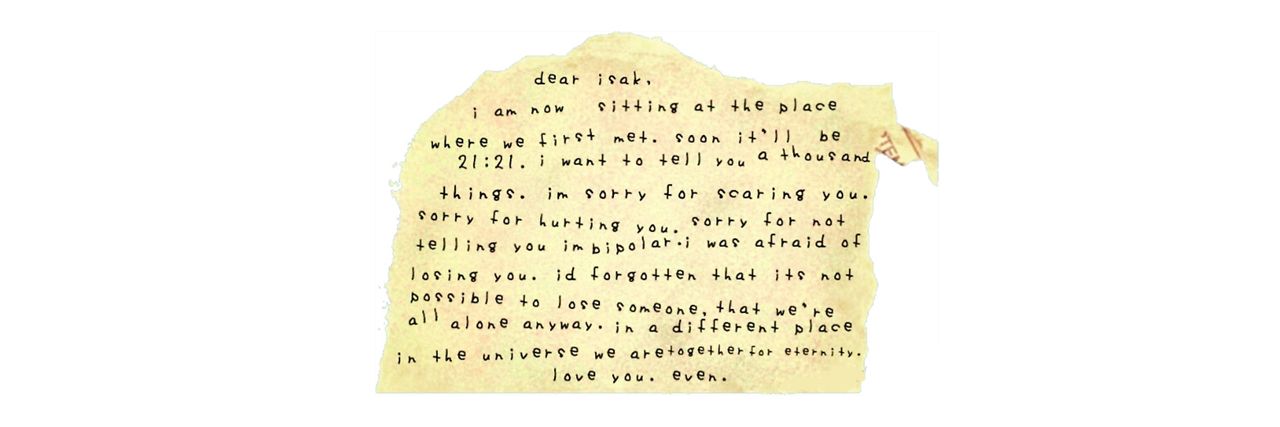 dear isak,
i am now sitting at the place
where we first met. soon it'll be
21:21. i want to tell you a thousand
things. im sorry for scaring you.
sorry for hurting you. sorry for not
telling you im bipolar. i was afraid of
losing you. id forgotten that its not
possible to lose someone, that we're
all alone anyway. in a different place
in the universe we are together for eternity.
love you. even.